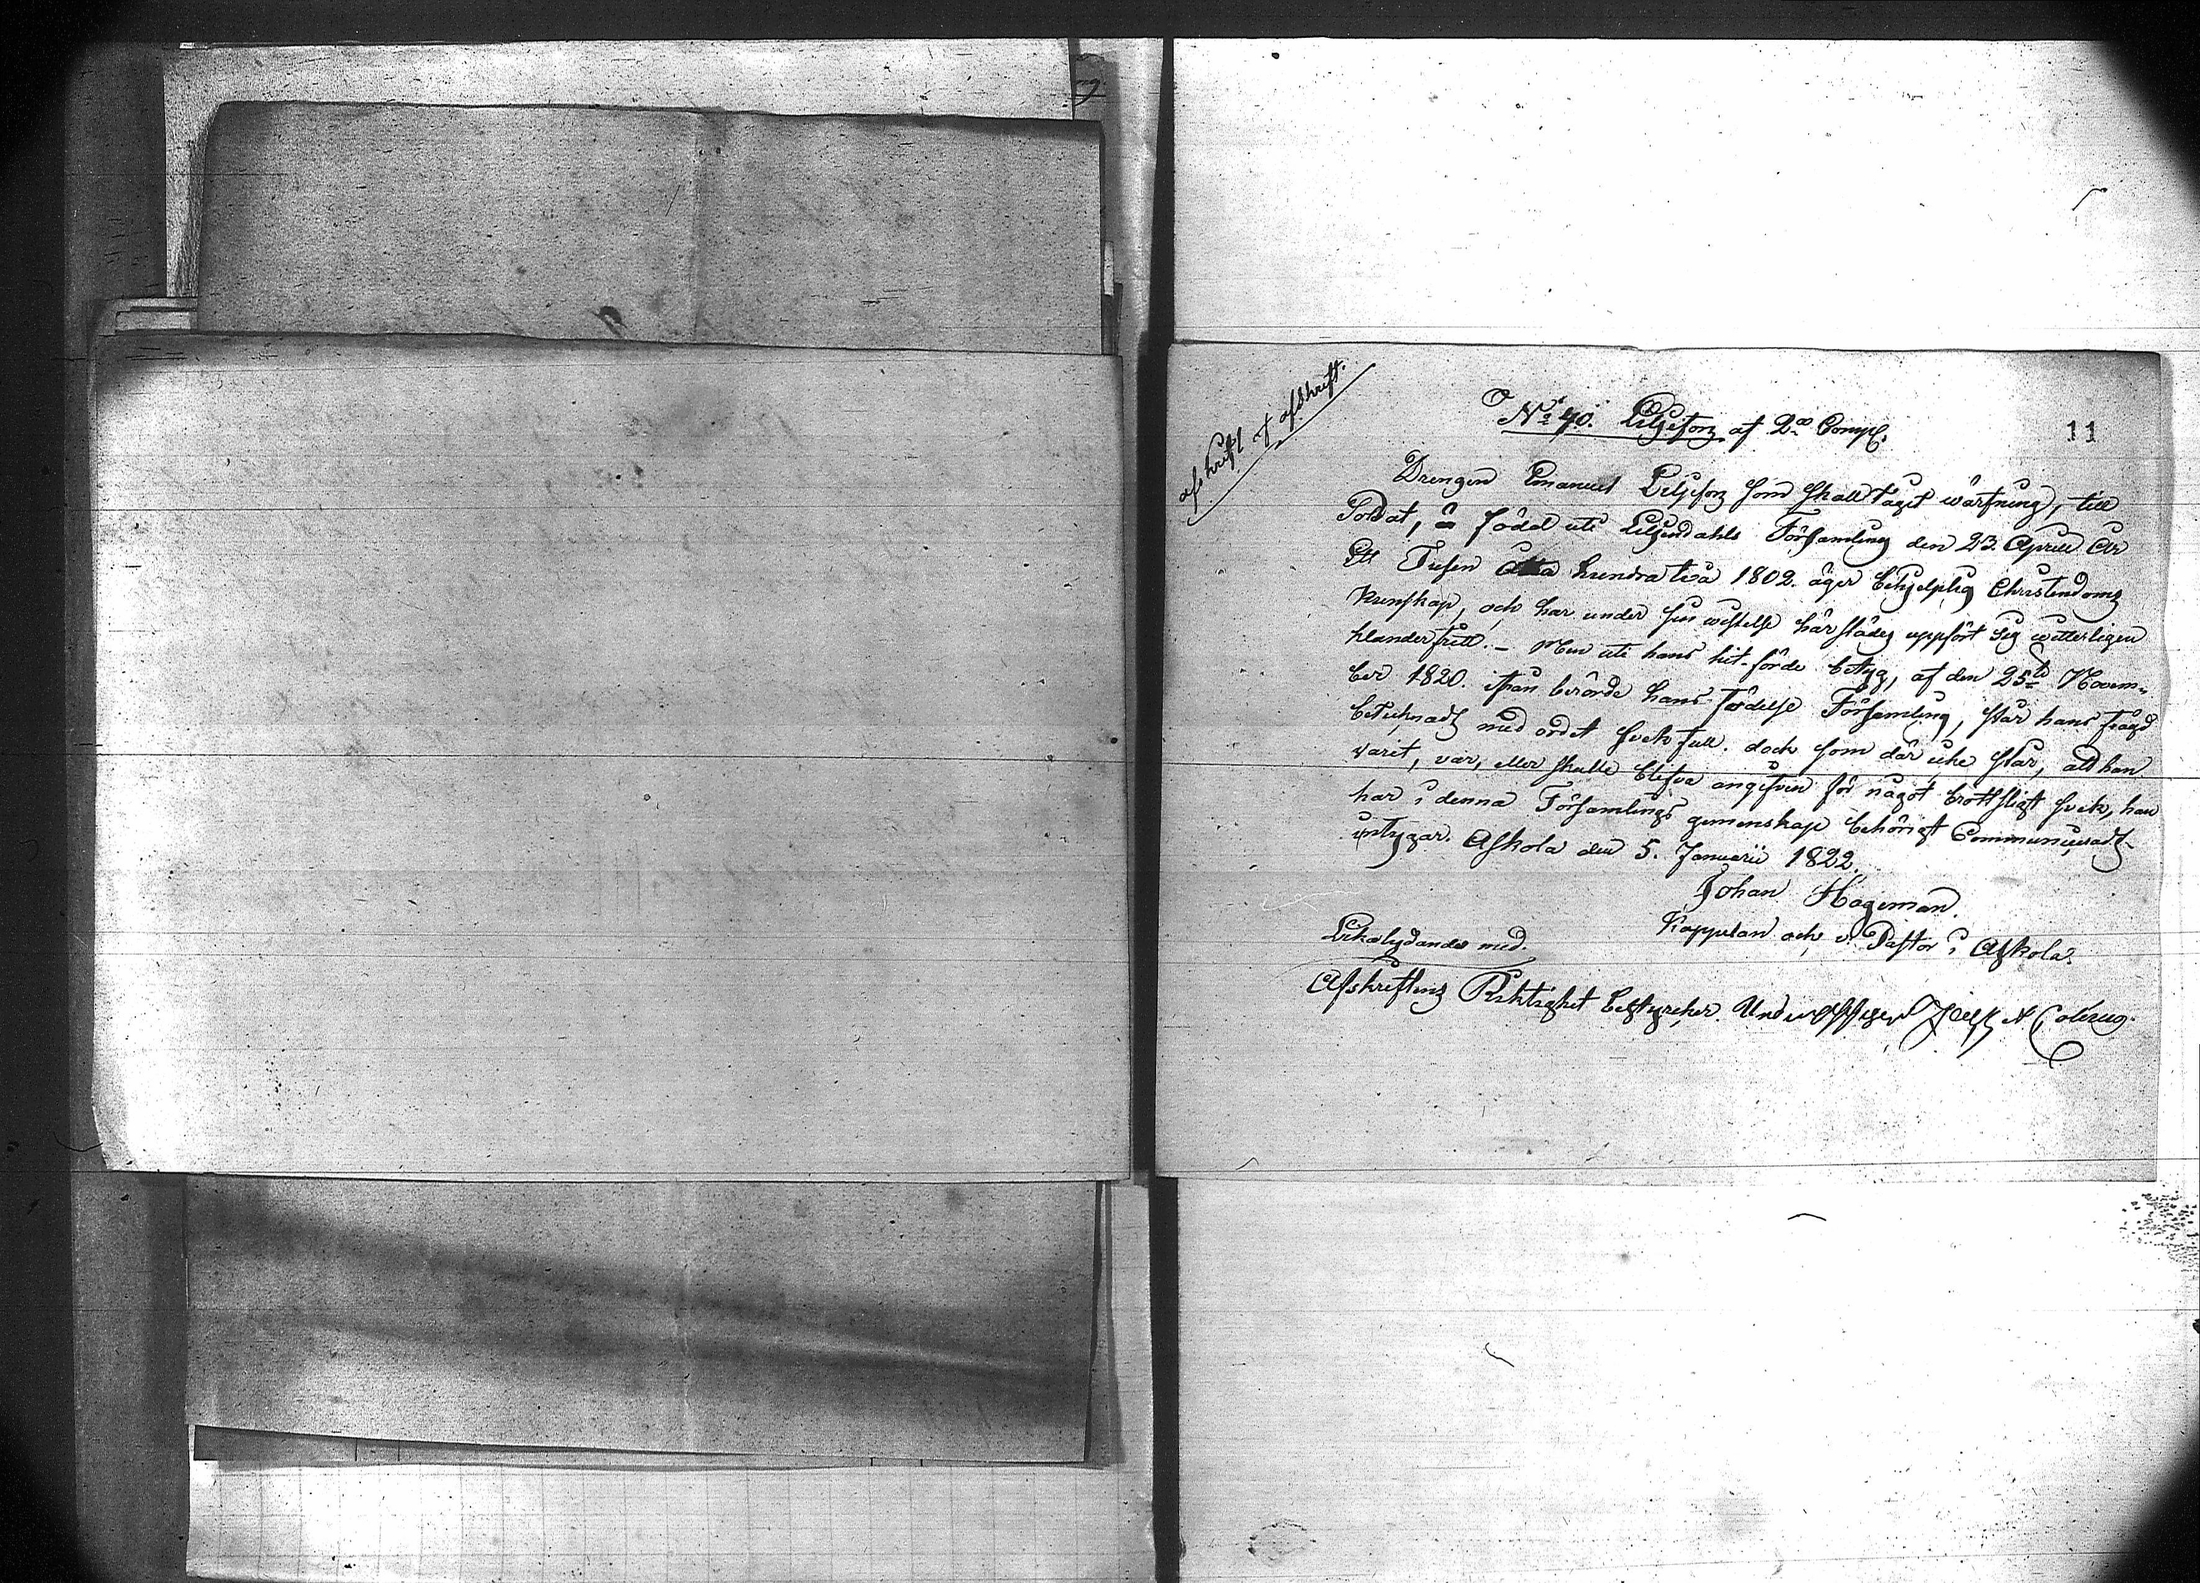 afskrift af afskrift.
N:o 40. Liljefors af 2:a Comp.
11
Drengen Emanuel Liljefors som skall taget wärfning, till
Soldat, är född uti Liljendahls Församling den 23 April År
Ett Tusen Åtta hundra två 1802. äger behjelplig Christendoms
kunskap, och har under sin wistelse härstädes uppfört sig witterligen
klanderfritt. – Men uti hans hit-förde betyg, af den 25te Novem-
ber 1820. ifrån berörde hans födelse Församling, står hans frägd
betecknadt med ordet svekfull. doch som där icke står, att han
varit, var, eller skulle blifva angifven för något brottsligt svek, han
har i denna Församlings gemenskap behörigt Communiceradt.
intygar. Askola den 5. Januarii 1822.
Johan Hageman.
Kappelan och v. Pastor i Askola.
Likalydande med.
Afskriftens Riktighet bestyrcker.